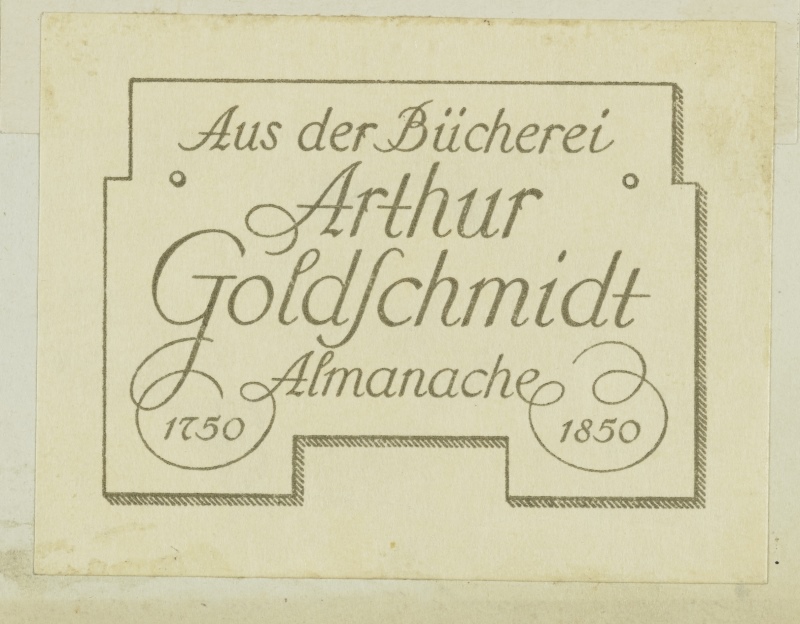 Aus der Bücherei
Arthur
Goldſchmidt
Almanache
1750 1850